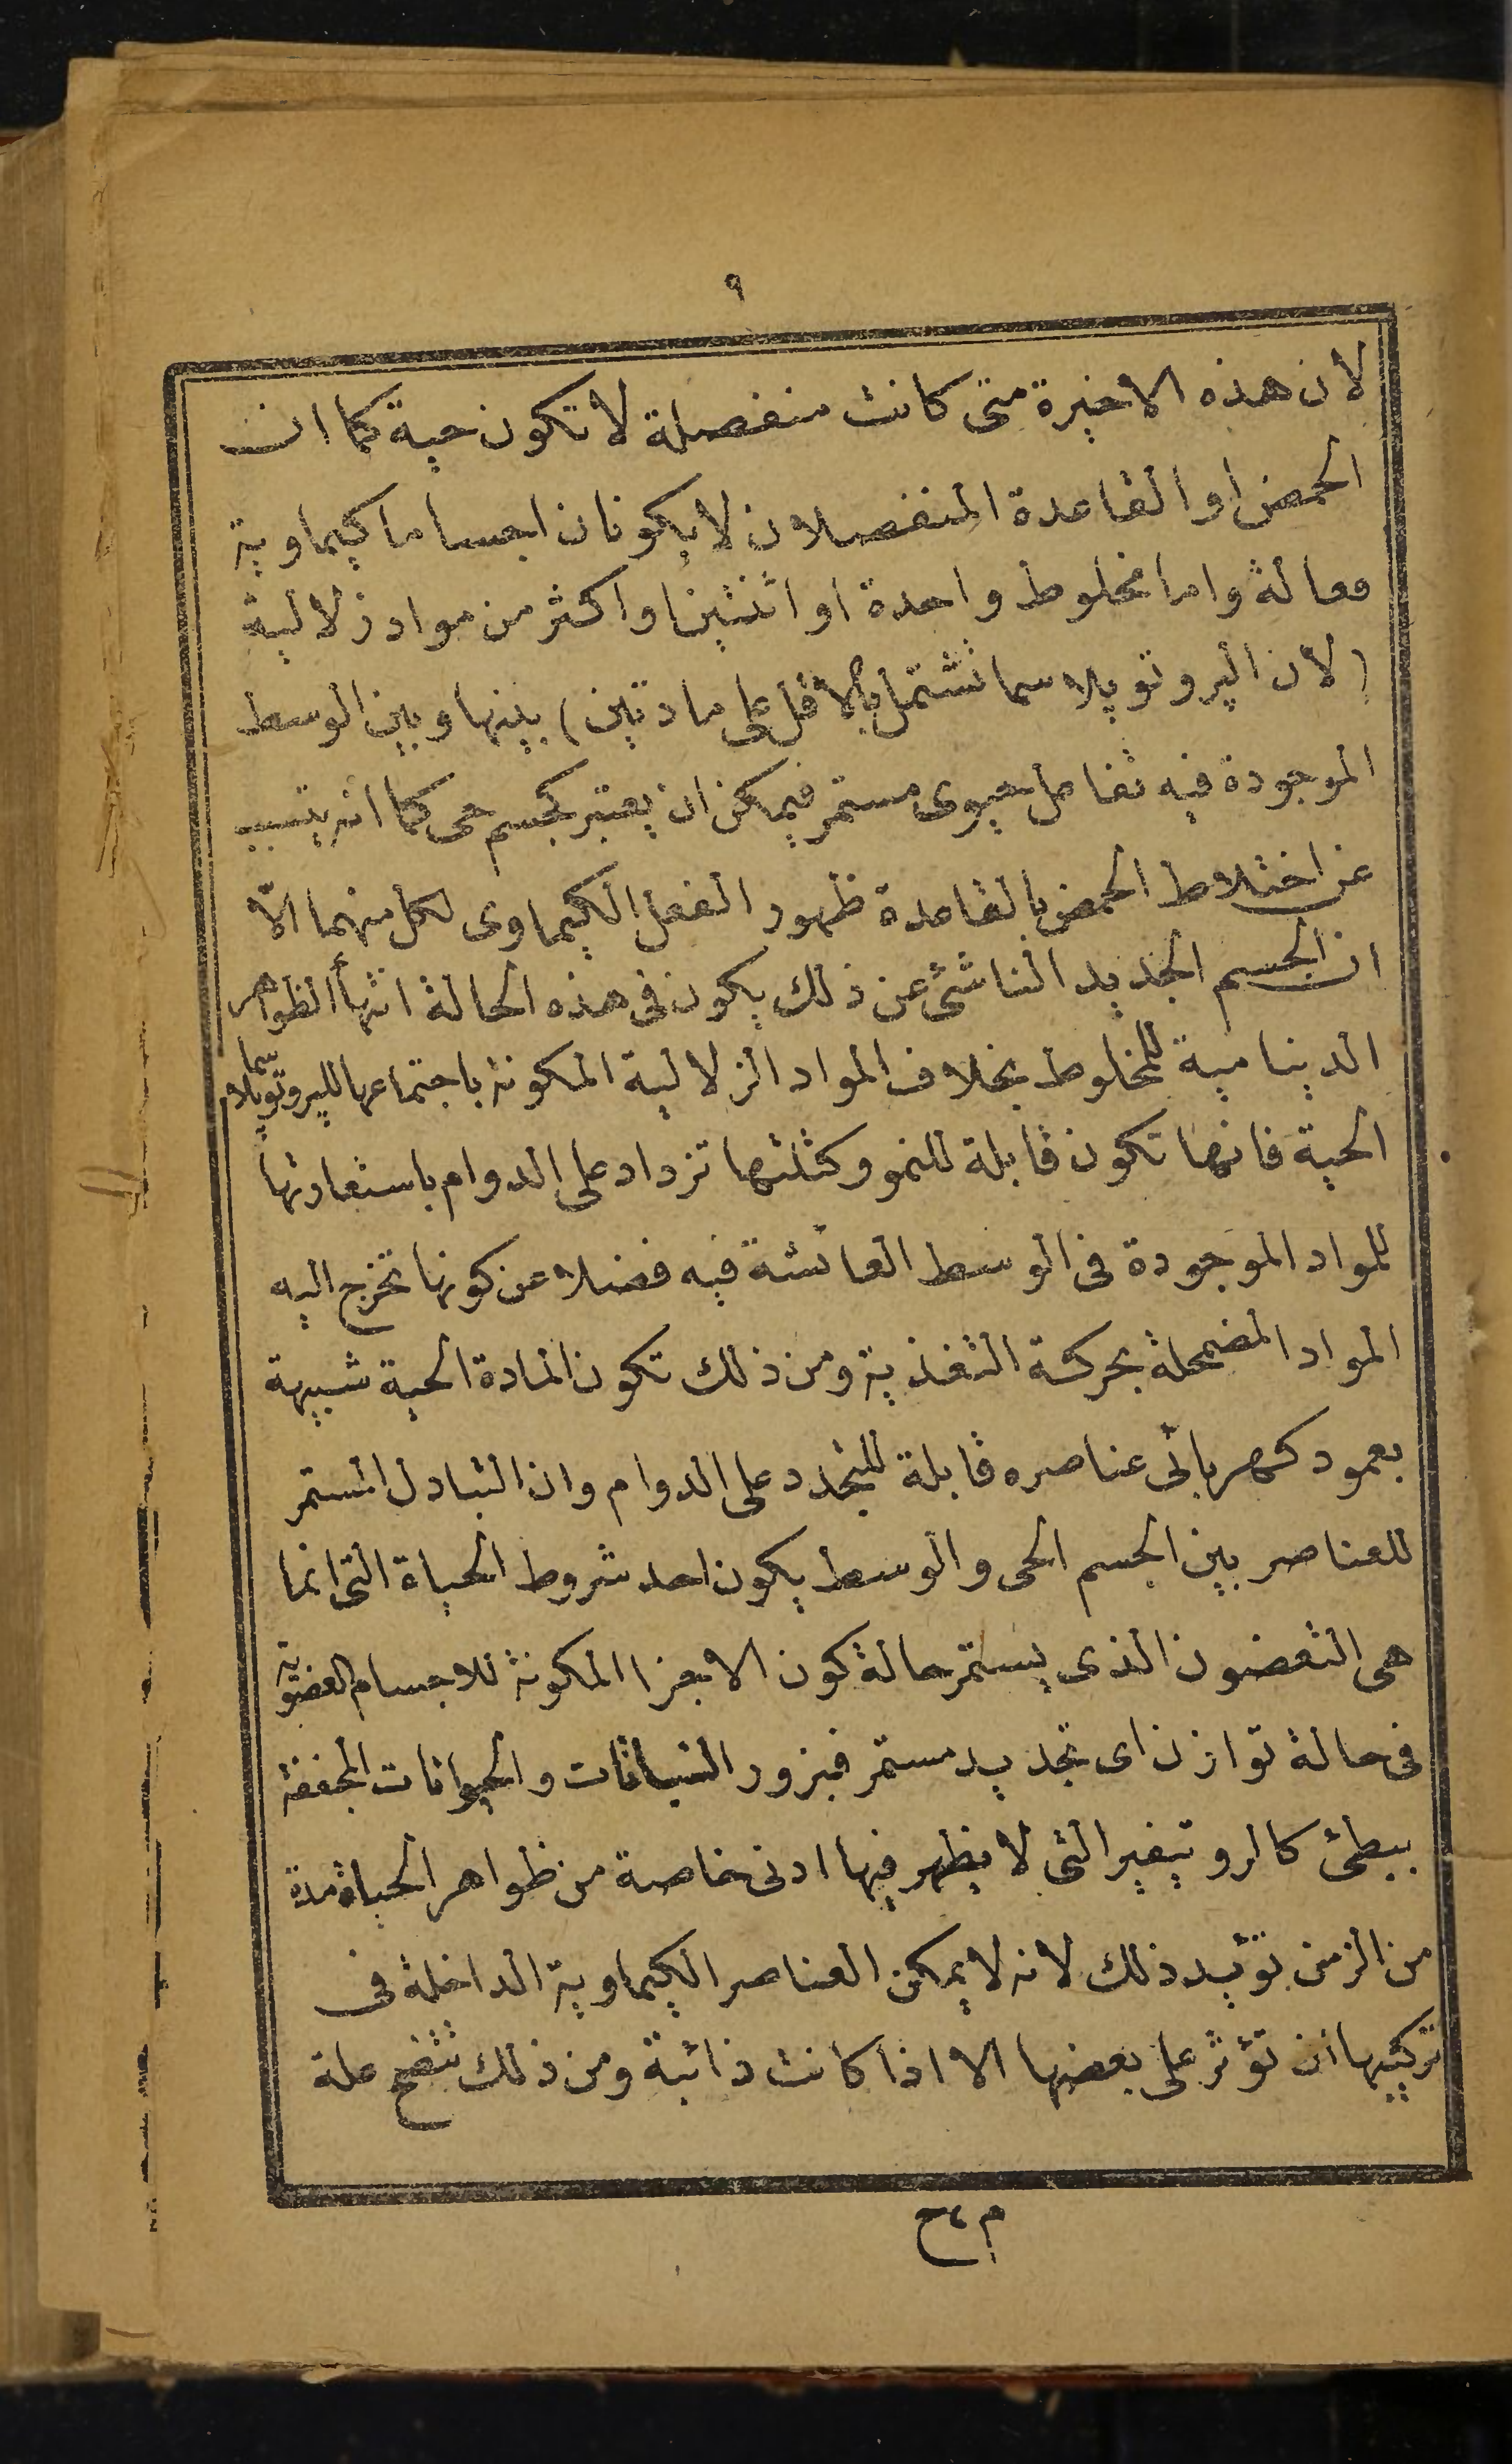 ٩
لان هذه الاخيرة متى كانت منفصلة لا تكون حية كما ان
الحمض او القاعدة المنفصلان لا يكونان اجساما كيماوية
فعالة واما مخلوط واحدة او اثنتين او اكثر من مواد زلالية
(لان البروتوپلاسما تشتمل بالاقل على مادتين) بينها وبين الوسط
الموجودة فيه تفاعل حيوى مستمر فيمكن ان يعتبر كجسم حى كما انه يتسبب
عن اختلاط الحمض بالقاعدة ظهور الفعل الكيماوى لكل منهما الّا
ان الجسم الجديد الناشئ عن ذلك يكون فى هذه الحالة انتهأ الظواهر
الديناميية للمخلوط بخلاف المواد الزلالية المكونة باجتماعها للپروتوپلاسما
الحية فانها تكون قابلة للنمو وكتلتها تزداد على الدوام باستعارتها
للمواد الموجودة فى الوسط العائشة فيه فضلا عن كونها تخرج اليه
المواد المضمحلة بحركة التغذية ومن ذلك تكون المادة الحية شبيهة
بعمود كهربائى عناصره قابلة للتجدد على الدوام وان التبادل المستمر
للعناصر بين الجسم الحى والوسط يكون احد شروط الحياة التى انما
هى التعضون الذى يستمر حالة كون الاجزا المكونة للاجسام العضوية
فى حالة توازن اى تجديد مستمر فبزور النباتات والحيوانات المجففة
ببطئ كالروتيفير التى لا يظهر فيها ادنى خاصة من ظواهر الحياة مدة
من الزمن تؤيد ذلك لانه لا يمكن العناصر الكيماوية الداخلة فى
تركيبها ان تؤثر على بعضها الا اذا كانت ذائبة ومن ذلك تتضح علة
م ٤ ح